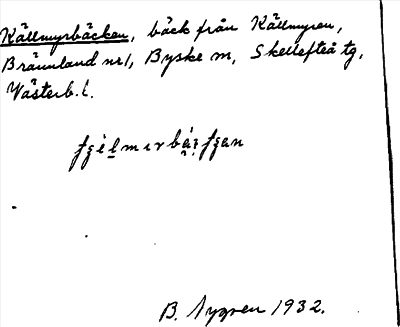 Källmyrbäcken, bäck från Källmyren,
Brännland nr 1, Byske sn, Skellefteå tg,
Västerb. l.
B. Nygren 1932.